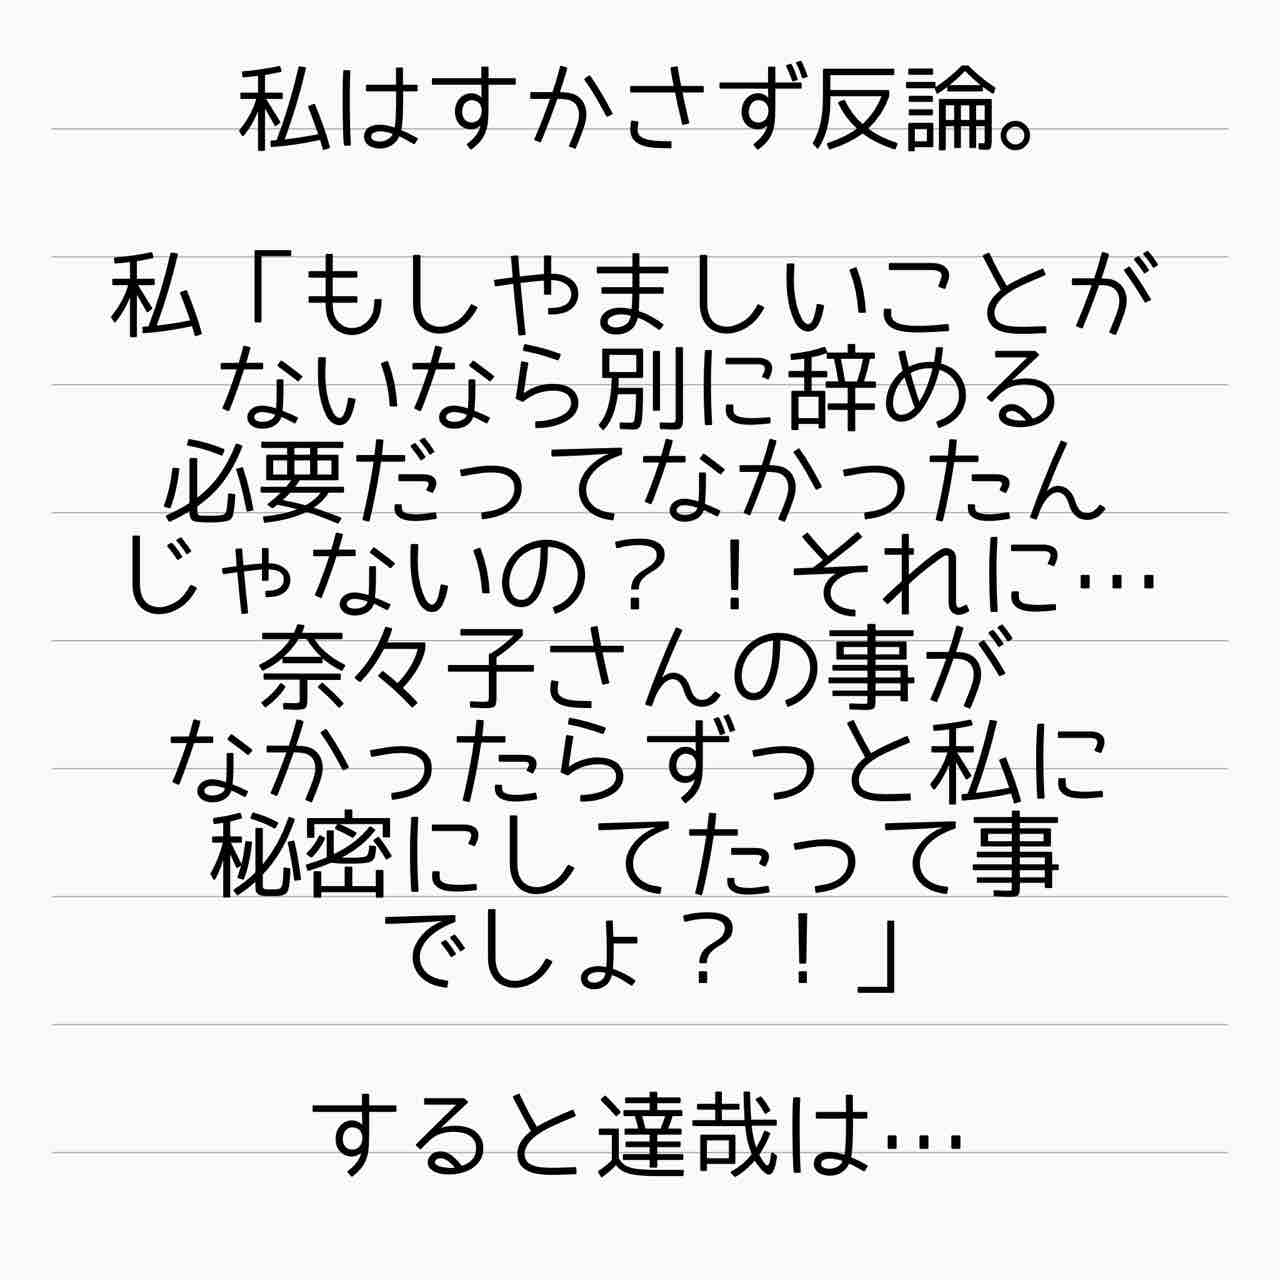 私はすかさず反論。
私「もしやましいことが
ないなら別に辞める
必要だってなかったん
じゃないの？！それに…
奈々子さんの事が
なかったらずっと私に
秘密にしてたって事
でしょ？！」
すると達哉は…